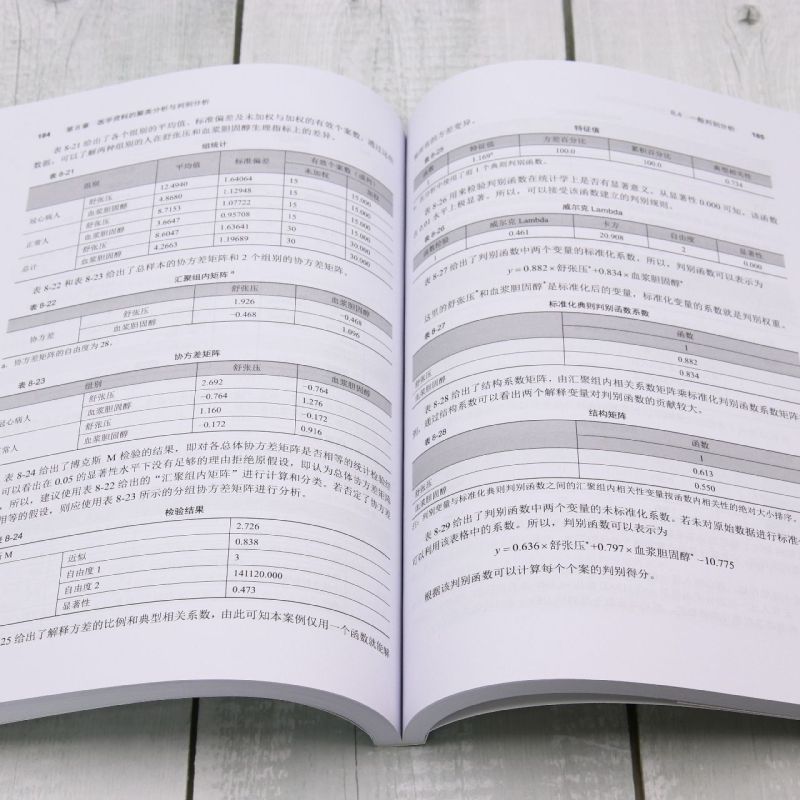 184 第8章 医学资料的聚类分析与判别分析
表 8-21 给出了各个组别的平均值、标准偏差及未加权与加权的有效个案数,通过这些
数据,可以了解两种组别的人在舒张压和血浆胆固醇生理指标上的差异。
表 8-21 组统计
组别 平均值 标准偏差 有效个案数(成列)
未加权 加权
冠心病人 舒张压 12.4940 1.64064 15 15.000
血浆胆固醇 4.8680 1.12948 15 15.000
正常人 舒张压 8.7153 1.07722 15 15.000
血浆胆固醇 3.6647 0.95708 15 15.000
总计 舒张压 8.6047 1.63641 30 30.000
血浆胆固醇 4.2663 1.19689 30 30.000
表 8-22 和表 8-23 给出了总样本的协方差矩阵和 2 个组别的协方差矩阵。
表 8-22 汇聚组内矩阵 a
舒张压 血浆胆固醇
协方差 舒张压 1.926 -0.468
血浆胆固醇 -0.468 1.096
a. 协方差矩阵的自由度为 28。
表 8-23 协方差矩阵
组别 舒张压 血浆胆固醇
冠心病人 舒张压 2.692 -0.764
血浆胆固醇 -0.764 1.276
正常人 舒张压 1.160 -0.172
血浆胆固醇 -0.172 0.916
表 8-24 给出了博克斯 M 检验的结果,即对各总体协方差矩阵是否相等的统计检验结
可以看出在 0.05 的显著性水平下没有足够的理由拒绝原假设,即认为总体协方差矩阵
所以,建议使用表 8-22 给出的“汇聚组内矩阵”进行计算和分类。若否定了协方差
相等的假设,则应使用表 8-23 所示的分组协方差矩阵进行分析。
8-24 检验结果
M 2.726
近似 0.838
自由度 1 3
自由度 2 141120.000
显著性 0.473
25 给出了解释方差的比例和典型相关系数,由此可知本案例仅用一个函数就能解
一般判别分析 185
有的方差变异。
表 8-25 特征值
函数 特征值 方差百分比 累积百分比 典型相关性
1 1.169a 100.0 100.0 0.734
a. 在分析中使用了前 1 个典则判别函数。
表 8-26 用来检验判别函数在统计学上是否有显著意义。从显著性 0.000 可知,该函数
在 0.01 水平上极显著。所以,可以接受该函数建立的判别规则。
表 8-26 威尔克 Lambda
函数检验 威尔克 Lambda 卡方 自由度 显著性
1 0.461 20.908 2 0.000
表 8-27 给出了判别函数中两个变量的标准化系数,所以,判别函数可以表示为
y = 0.882 × 舒张压* + 0.834 × 血浆胆固醇*
这里的舒张压*和血浆胆固醇*是标准化后的变量,标准化变量的系数就是判别权重。
表 8-27 标准化典则判别函数系数
函数
1
舒张压 0.882
血浆胆固醇 0.834
表 8-28 给出了结构系数矩阵,由汇聚组内相关系数矩阵乘标准化判别函数系数矩阵
通过结构系数可以看出两个解释变量对判别函数的贡献较大。
表 8-28 结构矩阵
函数
1
舒张压 0.613
血浆胆固醇 0.550
注:判别变量与标准化典则判别函数之间的汇聚组内相关性变量按函数内相关性的绝对大小排序。
表 8-29 给出了判别函数中两个变量的未标准化系数。若未对原始数据进行标准化
可以利用该表格中的系数。所以,判别函数可以表示为
y = 0.636 × 舒张压* + 0.797 × 血浆胆固醇* − 10.775
根据该判别函数可以计算每个个案的判别得分。